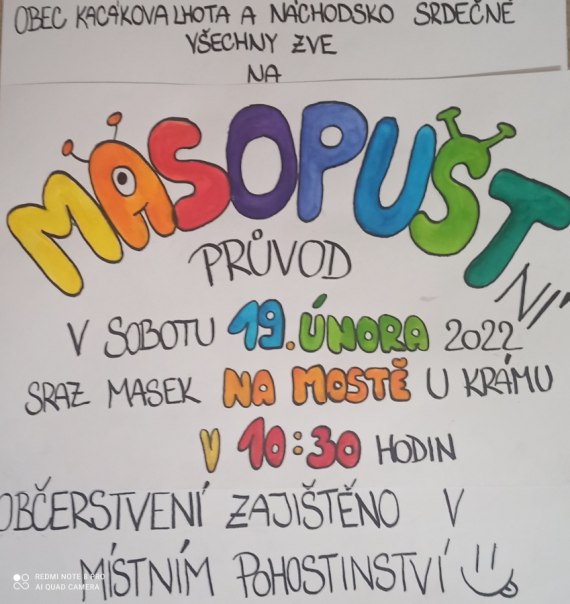 OBEC KACÁKOVA LHOTA A NÁCHODSKO SRDEČNĚ
VŠECHNY ZVE
NA
MASOPUŠTNÍ
PRŮVOD
V SOBOTU 19. ÚNORA 2022
SRAZ MASEK NA MOSTĚ U KRÁMU
V 10:30 HODIN
OBČERSTVENÍ ZAJIŠTĚNO V
MÍSTNÍM POHOSTINSTVÍ
REDMI NOTE 8 PRO
AI QUAD CAMERA